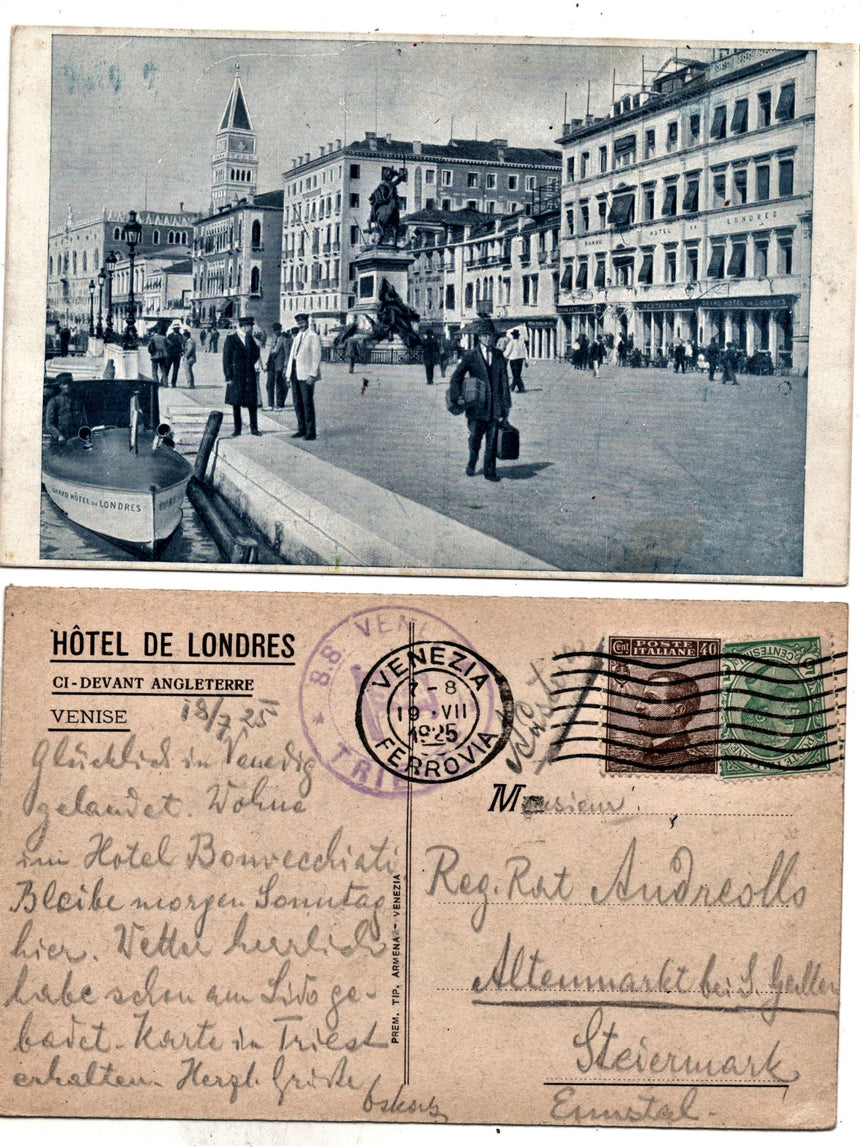 GRAND HOTEL DE LONDRES
RESTAURANT GRAND HOTEL DE LONDRES
GRAND HÔTEL DE LONDRES
HÔTEL DE LONDRES
CI-DEVANT ANGLETERRE
VENISE
18/7 25
Glücklich in Venedig
gelandet. Wohne
im Hotel Bonvecchiati
Bleibe morgen Sonntag
hier. Wetter herrlich
habe schon am Lido ge-
badet. Karte in Triest
erhalten. Herzl. Grüße
Oskar
PREM. TIP. ARMENA - VENEZIA
VENEZIA
7-8
19 VII
1925
FERROVIA
Austria
Cent POSTE 40
ITALIANE
Monsieur
Reg. Rat Andreolls
Altenmarkt bei S. Gallen
Steiermark
Ennstal.